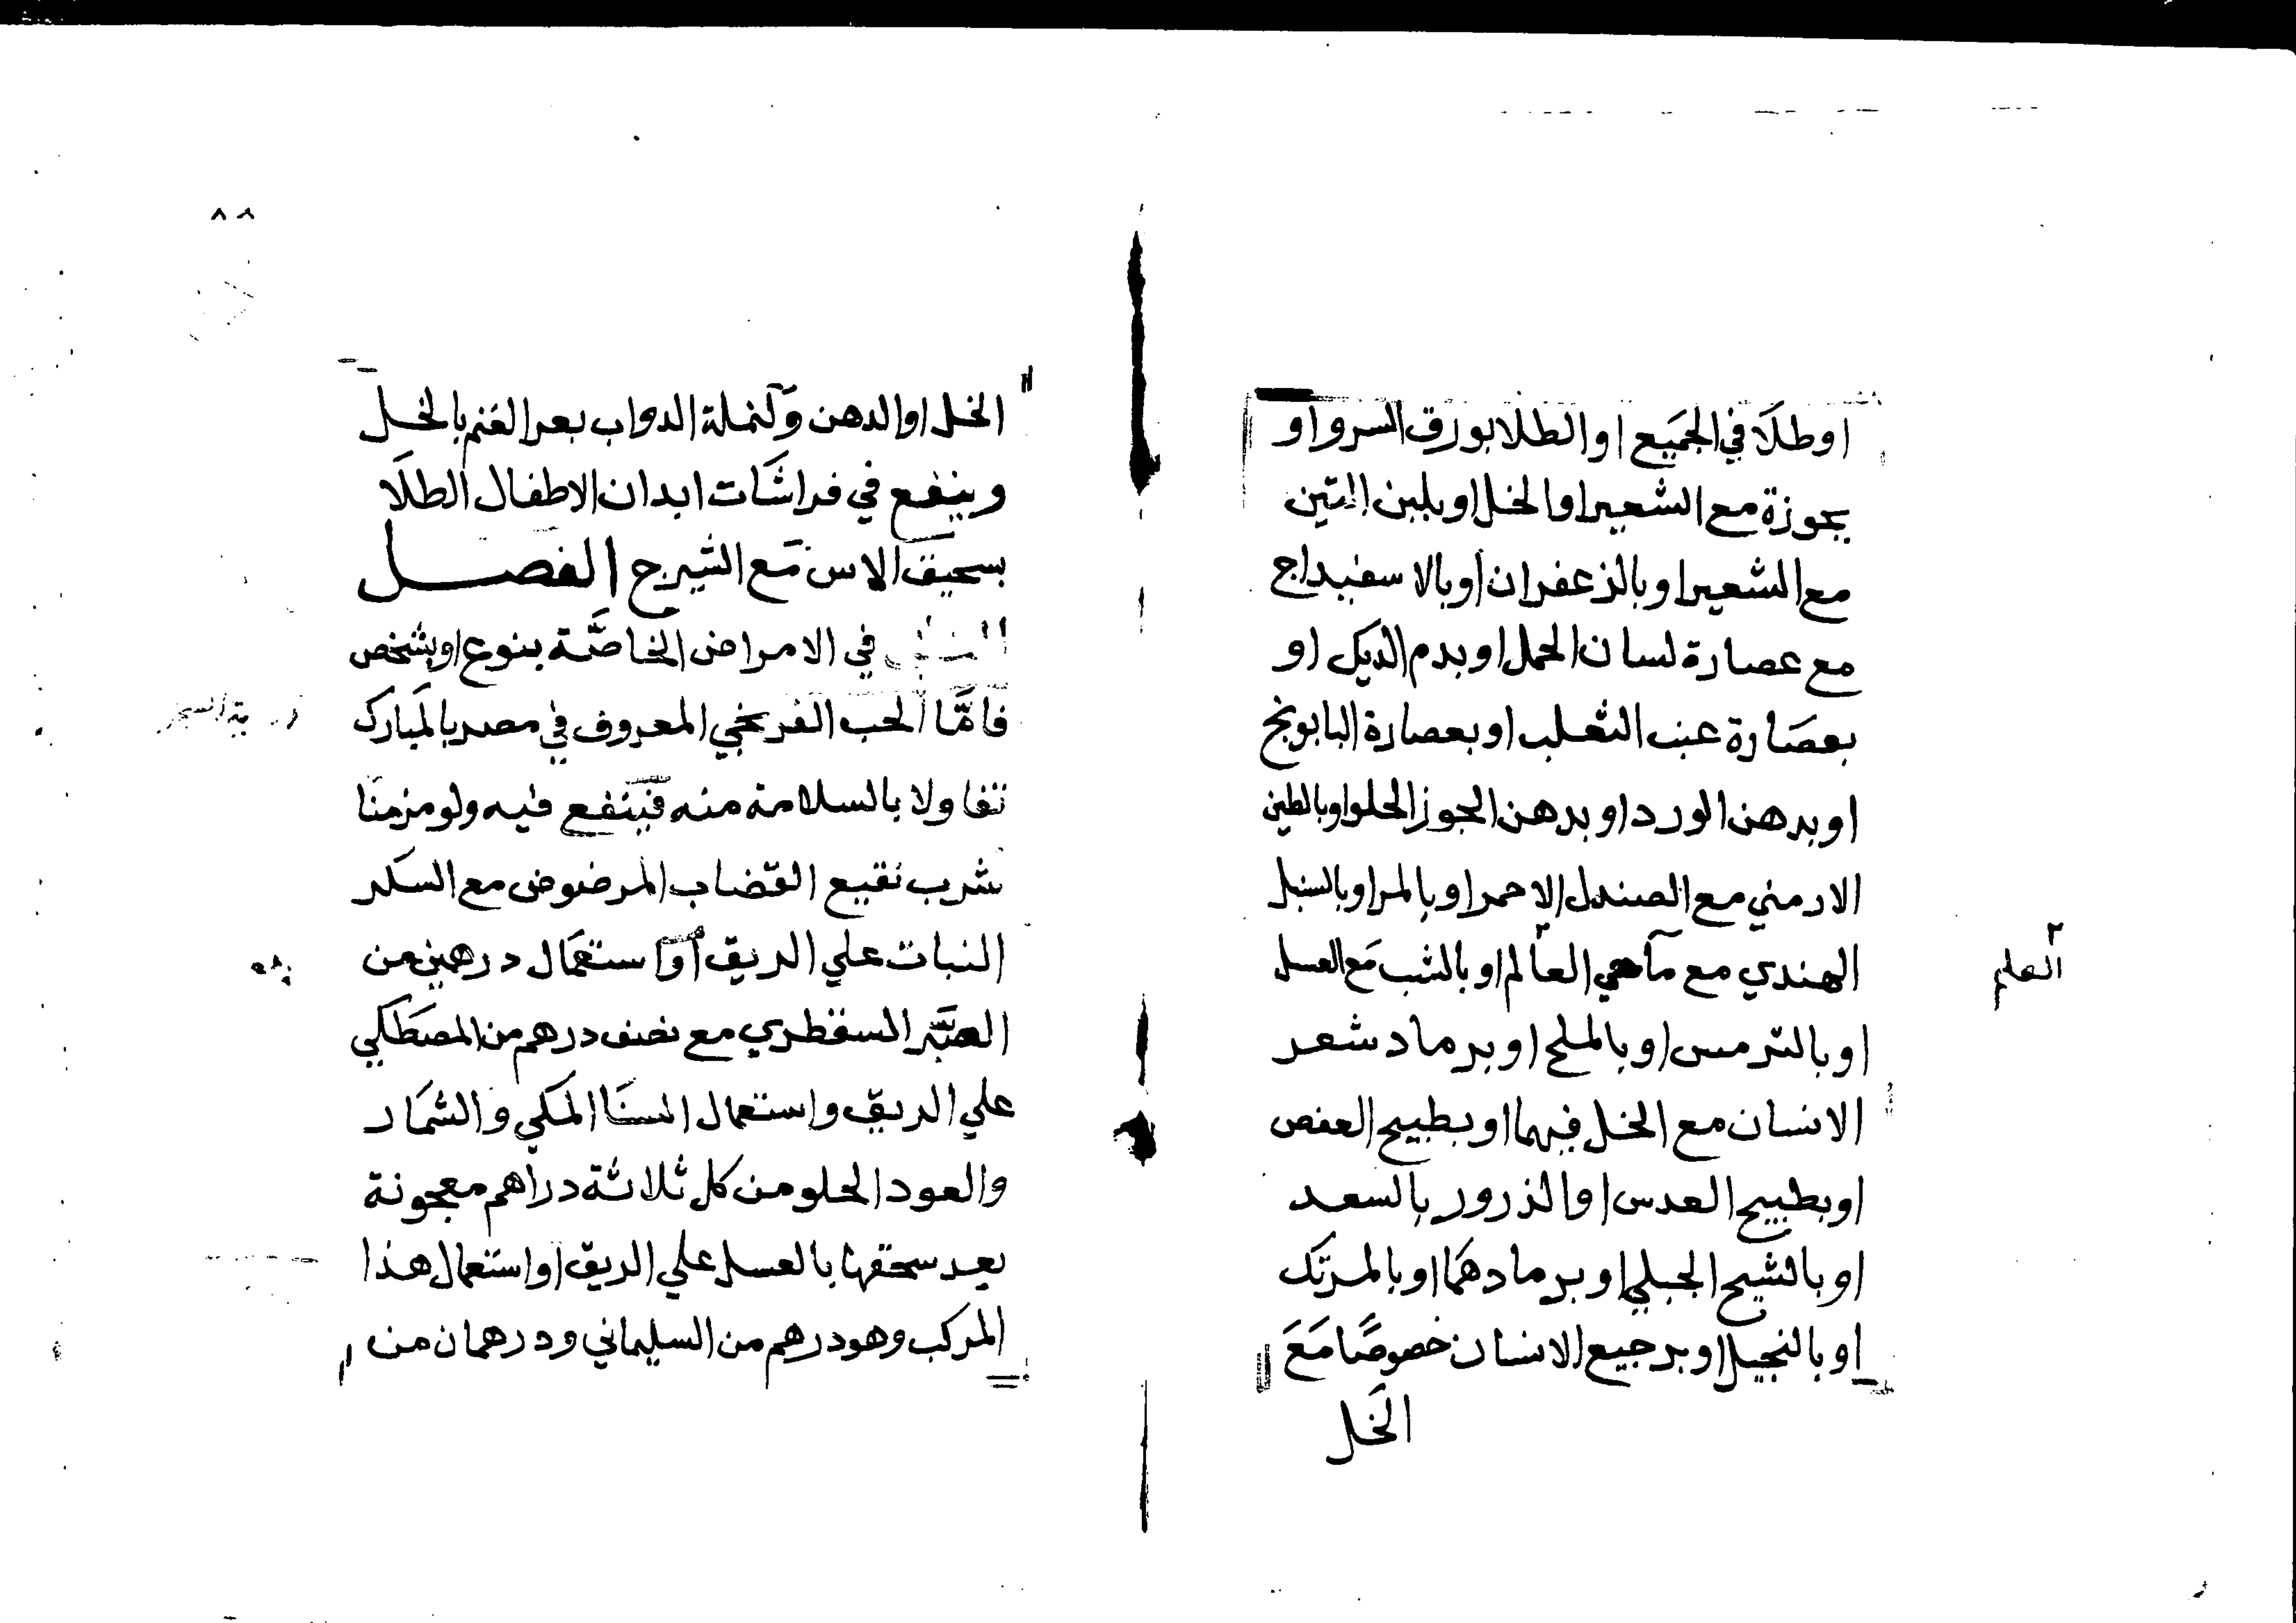 اوطلَا في الجمَيع اوالطلا بورق السرو او
بجوزة مع الشعير اوالخل او بلبن التين
مع الشعير اوبالزعفران اوبالاسفيداج
مع عصارة لسان الحمل اوبدم الديك او
بعصَارة عنب الثعلب اوبعصارة البابونج
اوبدهن الورد اوبدهن الجوز الحلو اوبالطين
الارمني مع الصندل الاحمر اوبالمر اوبالسنبل
الهندي مع مآ حي العالم اوبالشب مَع العسل
العلم
اوبالترمس اوبالملح اوبرماد شعر
الانسان مع الخل فيهما اوبطبيخ العفص
اوبطبيخ العدس اوالذرور بالسعد
اوبالشيح الجبلي اوبرمادهمَا اوبالمرتك
اوبالنجيل اوبرجيع الانسان خصوصًا مَعَ
الخَل
٨٨
الخل اوالدهن وَلنملة الدواب بعر الغنم بالخل
وينفع في فراشَات ابدان الاطفال الطلَا
بسحيق الاس مَع الشيرج الفصل
في الامراض الخاصَّة بنوع اوبشخص
فامَّا الحب الفرنجي المعروف في مصر بالمَبارك
تفاولا بالسلامة منه فينفع فيه ولو مزمنَا
شرب نقيع القضاب المرضوض مع السكر
النبات علي الريق اواستعمَال درهمين من
الصَّبر السقطري مع نصف درهم من المصطَكي
علي الريق واستعمال السنَا المَكي وَالشمَار
والعود الحلو من كل ثلاثة دراهم معجونة
بعد سحقها بالعسل علي الريق اواستعمال هذا
المركب وهو درهم من السليماني ودرهمان من